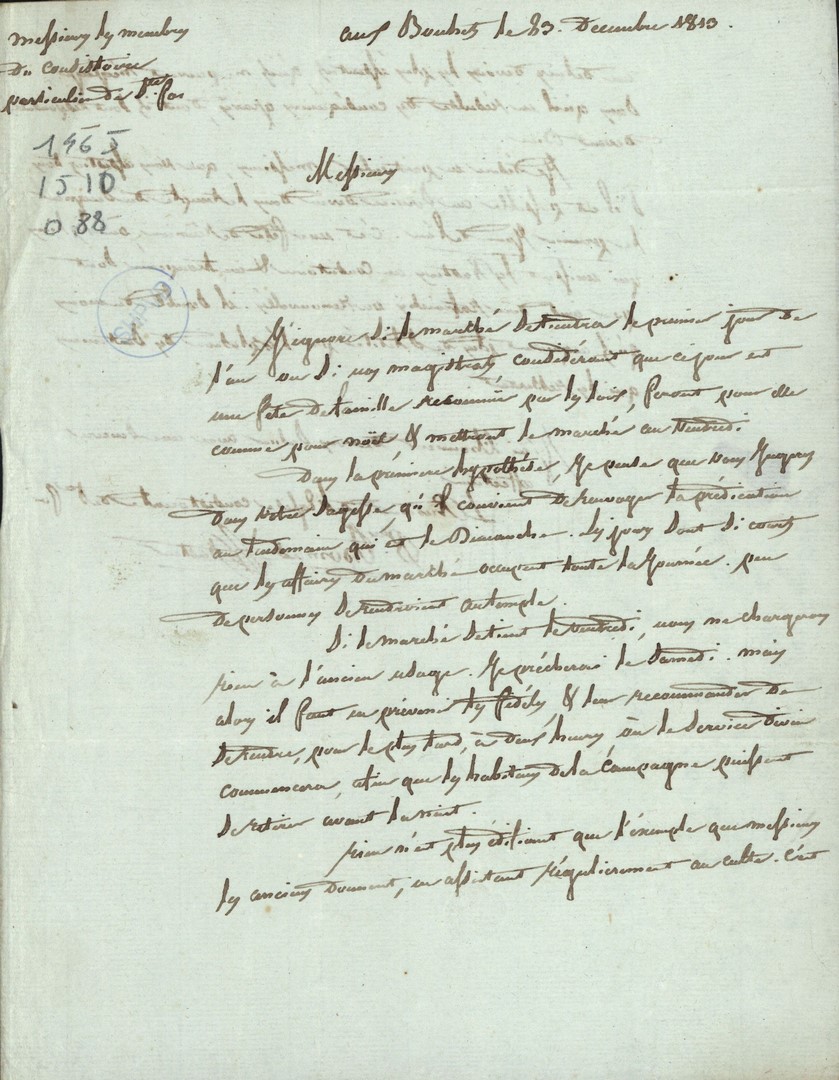 aux Bouhets le 23. Decembre 1813.
messieurs les membres
du consistoire
particulier de Ste foi
1565
1510
0 88
SHPF
Messieurs
J'ignore si le marché se tiendra le premier jour de
l'an ou si nos magistrats considérant que ce jour est
une fête de famille reconnue par les loix, feront pour elle
comme pour noël & mettront le marché au vendredi
Dans la prémiere hypothése, Je pense que vous Jugerez
dans votre sagesse qu'il convient de renvoyer la prédication
au lendemain qui est le Dimanche. Les jours sont si courts
que les affaires du marché occupent toute la Journée. peu
de personnes se rendroient au temple.
Si le marché se tient le vendredi, nous ne changerons
rien à l'ancien usage. Je précherai le Samedi. mais
alors il faut en prévenir les fidéles & leur recommander de
se rendre, pour le plus tard, à deux heures où le Service divin
commencera, afin que les habitans de la Campagne puissent
se retirer avant la nuit.
rien n'est plus édifiant que l'éxemple que messieurs
les anciens donnent, en assistant réguliérement au culte. c'est